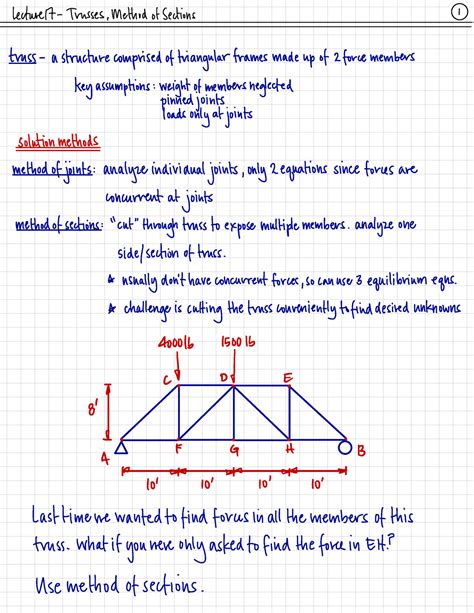 Lecture 17 - Trusses, Method of Sections
1
truss - a structure comprised of triangular frames made up of 2 force members
key assumptions: weight of members neglected
pinned joints
loads only at joints
solution methods
method of joints: analyze individual joints, only 2 equations since forces are
concurrent at joints
method of sections: "cut" through truss to expose multiple members. analyze one
side/section of truss.
* usually don't have concurrent forces, so can use 3 equilibrium eqns.
* challenge is cutting the truss conveniently to find desired unknowns
4000 lb 1500 lb
C D E
8'
A F G H B
10' 10' 10' 10'
Last time we wanted to find forces in all the members of this
truss. What if you were only asked to find the force in EH?
Use method of sections.